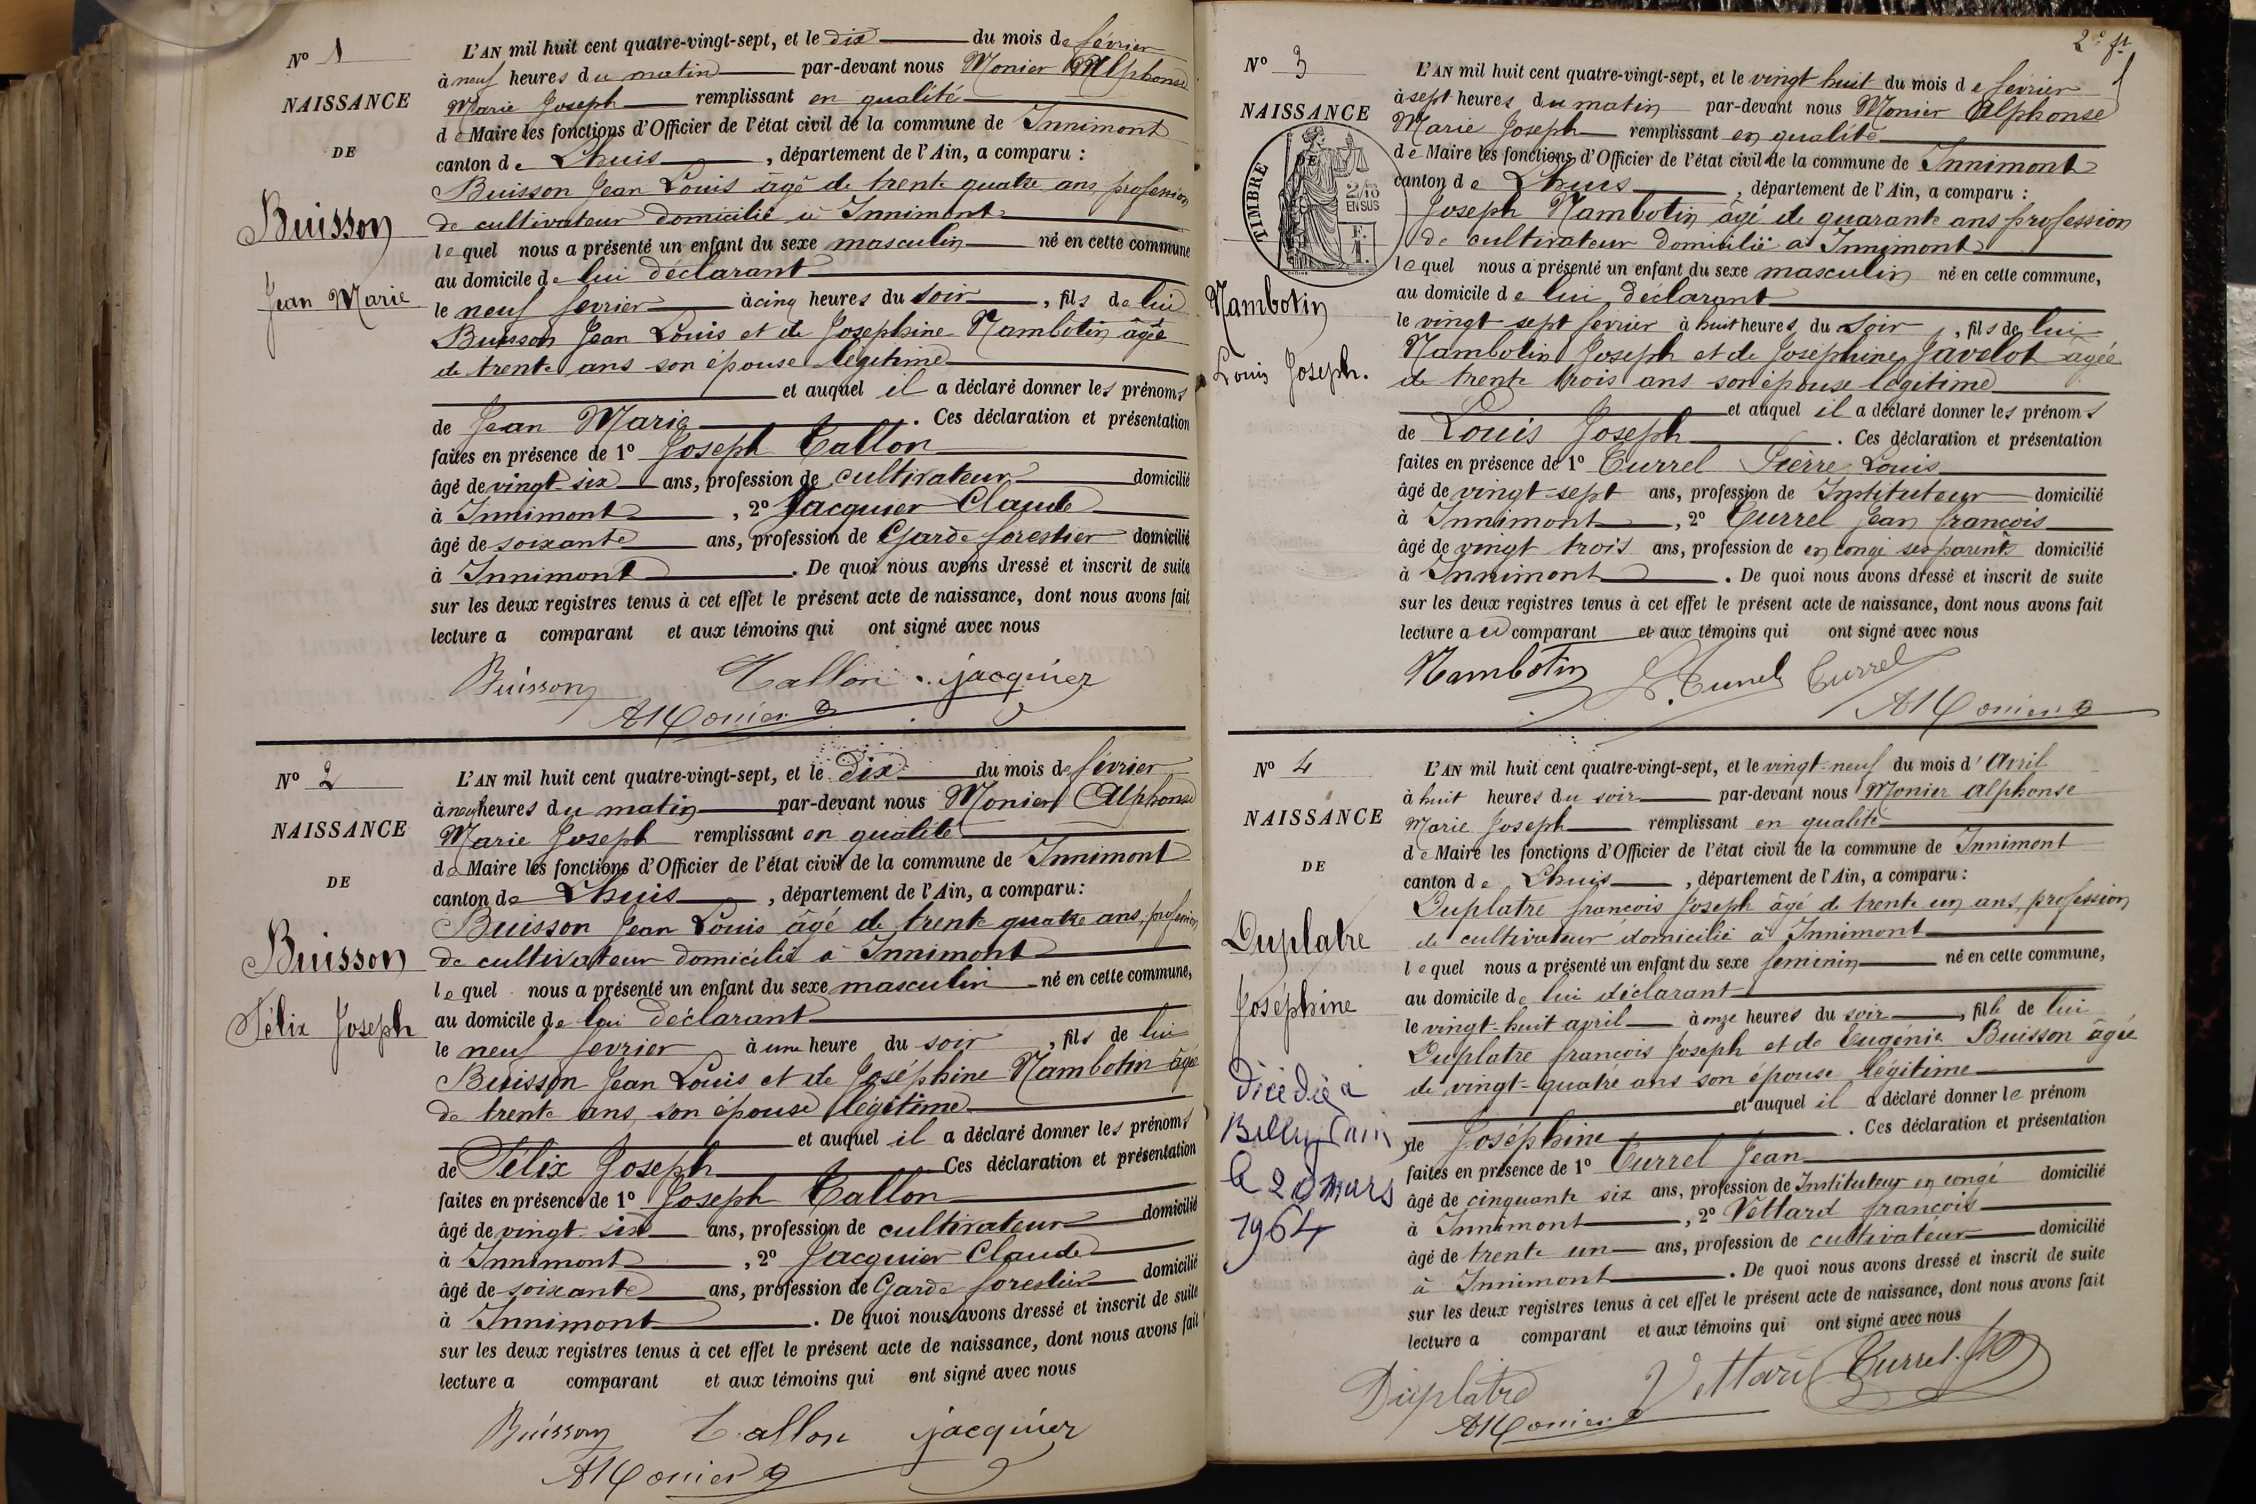 Nº 1
NAISSANCE
DE
Buisson
Jean Marie
L'AN mil huit cent quatre-vingt-sept, et le dix du mois de février
à neuf heures du matin par-devant nous Monier Alphonse
Marie Joseph remplissant en qualité
de Maire les fonctions d'Officier de l'état civil de la commune de Innimont
canton de Lhuis, département de l'Ain, a comparu :
Buisson Jean Louis âgé de trente quatre ans profession
de cultivateur domicilié à Innimont
lequel nous a présenté un enfant du sexe masculin né en cette commune
au domicile de lui déclarant
le neuf fevrier à cinq heures du soir, fils de lui
Buisson Jean Louis et de Josephine Nambotin âgée
de trente ans son épouse légitime
et auquel il a déclaré donner les prénoms
de Jean Marie. Ces déclaration et présentation
faites en présence de 1º Joseph Tallon
âgé de vingt-six ans, profession de cultivateur domicilié
à Innimont, 2º Jacquier Claude
âgé de soixante ans, profession de Garde forestier domicilié
à Innimont. De quoi nous avons dressé et inscrit de suite
sur les deux registres tenus à cet effet le présent acte de naissance, dont nous avons fait
lecture a comparant et aux témoins qui ont signé avec nous
Buisson Tallon jacquier
AMonier
Nº 2
NAISSANCE
DE
Buisson
Félix Joseph
L'AN mil huit cent quatre-vingt-sept, et le dix du mois de février
à neuf heures du matin par-devant nous Monier Alphonse
Marie Joseph remplissant en qualité
de Maire les fonctions d'Officier de l'état civil de la commune de Innimont
canton de Lhuis, département de l'Ain, a comparu :
Buisson Jean Louis âgé de trente quatre ans, profession
de cultivateur domicilié à Innimont
lequel nous a présenté un enfant du sexe masculin né en cette commune,
au domicile de lui déclarant
le neuf fevrier à une heure du soir, fils de lui
Buisson Jean Louis et de Joséphine Nambotin âgée
de trente ans, son épouse légitime
et auquel il a déclaré donner les prénoms
de Félix Joseph Ces déclaration et présentation
faites en présence de 1º Joseph Tallon
âgé de vingt-six ans, profession de cultivateur domicilié
à Innimont, 2º Jacquier Claude
âgé de soixante ans, profession de Garde forestier domicilié
à Innimont. De quoi nous avons dressé et inscrit de suite
sur les deux registres tenus à cet effet le présent acte de naissance, dont nous avons fait
lecture a comparant et aux témoins qui ont signé avec nous
Buisson Tallon jacquier
AMonier
2e ft
Nº 3
NAISSANCE
DE
TIMBRE
2/10
EN SUS
Nambotin
Louis Joseph.
L'AN mil huit cent quatre-vingt-sept, et le vingt huit du mois de fevrier
à sept heures du matin par-devant nous Monier Alphonse
Marie Joseph remplissant en qualité
de Maire les fonctions d'Officier de l'état civil de la commune de Innimont
canton de Lhuis, département de l'Ain, a comparu :
Joseph Nambotin âgé de quarante ans profession
de cultivateur domicilié à Innimont
lequel nous a présenté un enfant du sexe masculin né en cette commune,
au domicile de lui déclarant
le vingt sept fevrier à huit heures du soir, fils de lui
Nambotin Joseph et de Joséphine Javelot âgée
de trente trois ans son épouse légitime
et auquel il a déclaré donner les prénoms
de Louis Joseph. Ces déclaration et présentation
faites en présence de 1º Currel Pierre Louis
âgé de vingt-sept ans, profession de Instituteur domicilié
à Innimont, 2º Currel Jean francois
âgé de vingt trois ans, profession de en congé ses parents domicilié
à Innimont. De quoi nous avons dressé et inscrit de suite
sur les deux registres tenus à cet effet le présent acte de naissance, dont nous avons fait
lecture au comparant et aux témoins qui ont signé avec nous
Nambotin Currel
AMonier
Nº 4
NAISSANCE
DE
Duplatre
Joséphine
Décédée à
Belley Ain
le 20 mars
1964
L'AN mil huit cent quatre-vingt-sept, et le vingt-neuf du mois d'Avril
à huit heures du soir par-devant nous Monier Alphonse
Marie Joseph remplissant en qualité
de Maire les fonctions d'Officier de l'état civil de la commune de Innimont
canton de Lhuis, département de l'Ain, a comparu :
Duplatre francois Joseph âgé de trente un ans, profession
de cultivateur domicilié à Innimont
lequel nous a présenté un enfant du sexe feminin né en cette commune,
au domicile de lui déclarant
le vingt-huit april à onze heures du soir, fille de lui
Duplatre francois Joseph et de Eugénie Buisson âgée
de vingt-quatre ans son épouse légitime
et auquel il a déclaré donner le prénom
de Joséphine. Ces déclaration et présentation
faites en présence de 1º Currel Jean
âgé de cinquante six ans, profession de Instituteur en congé domicilié
à Innimont, 2º Vettard francois
âgé de trente un ans, profession de cultivateur domicilié
à Innimont. De quoi nous avons dressé et inscrit de suite
sur les deux registres tenus à cet effet le présent acte de naissance, dont nous avons fait
lecture a comparant et aux témoins qui ont signé avec nous
Duplatre Vettard Currel
AMonier